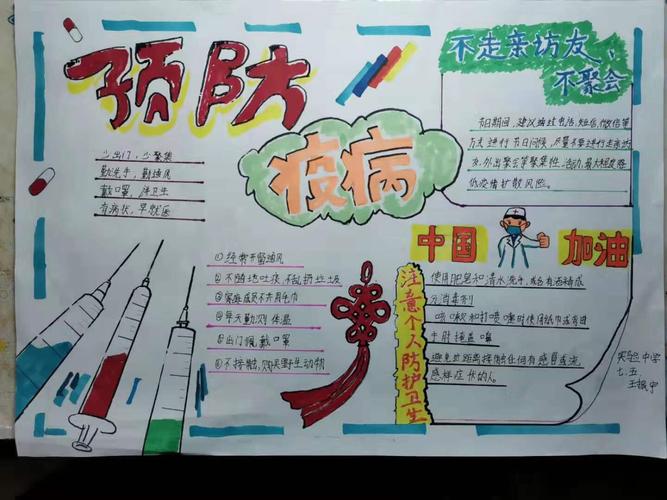 预防
疫病
不走亲访友、
不聚会
少出门，少聚集
勤洗手，勤通风
戴口罩，讲卫生
有病状，早就医
节日期间，建议通过电话，短信，微信等
方式进行节日问候，尽量不要进行走亲访
友，外出聚会等聚集性活动，最大程度降
低疫情扩散风险。
中国
加油
①经常开窗通风
②不随地吐痰，不乱扔垃圾
③家庭成员不共用毛巾
④每天勤测体温
⑤出门佩戴口罩
⑥不接触，购买野生动物
注意个人防护卫生
使用肥皂和清水洗手，或含有酒精成
分消毒剂
咳嗽和打喷嚏时使用纸巾或弯曲
手肘掩盖嘴
避免近距离接触任何有感冒或流
感样症状的人。
实验中学
七.五.
王振宁